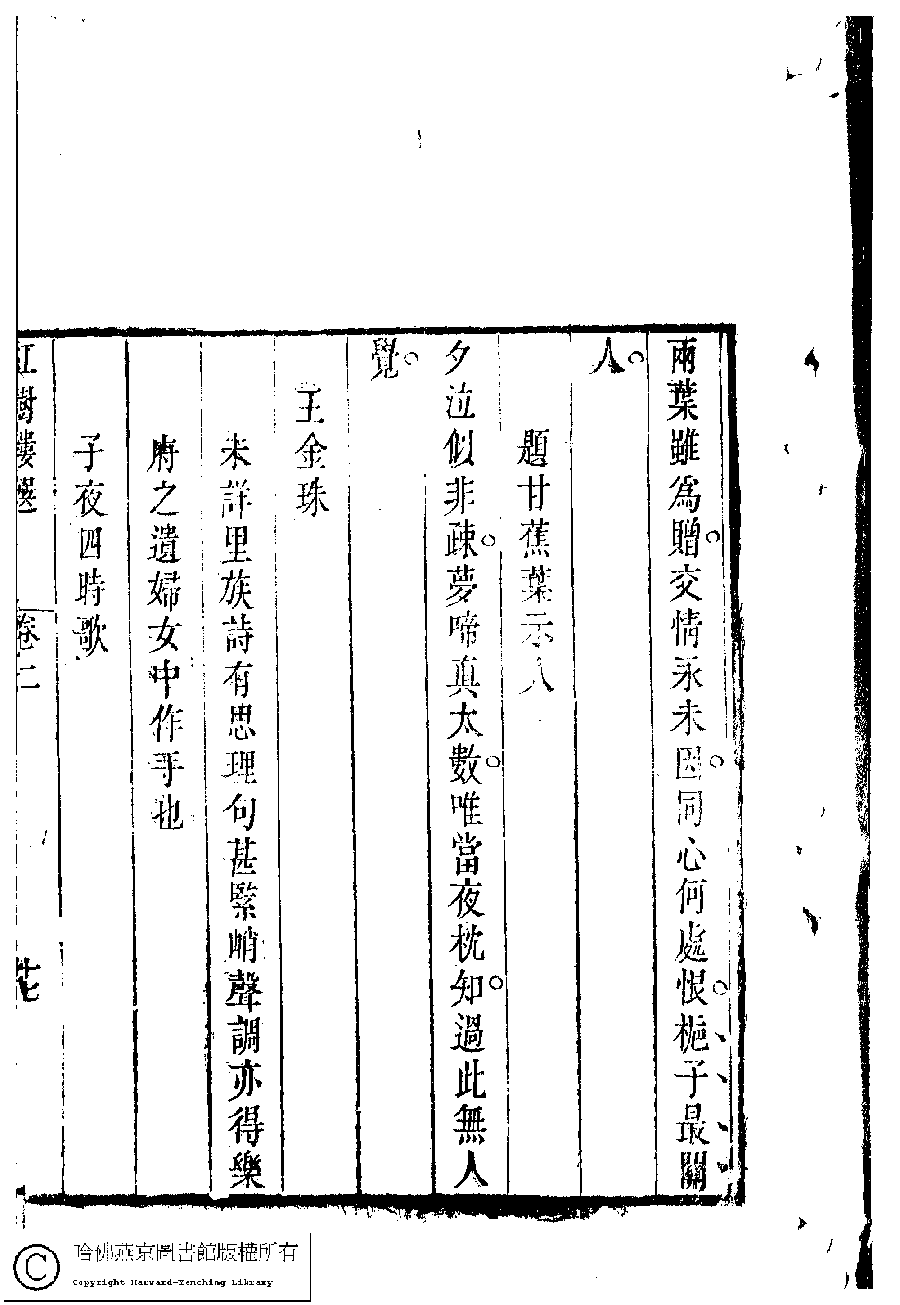 兩葉雖爲贈○交情永未因○同心何處恨○梔子最關
人○
題甘蕉葉示人
夕泣似非疎○夢啼真太數○唯當夜枕知○過此無人
覺○
王金珠
未詳里族詩有思理句甚緊峭聲調亦得樂
府之遺婦女中作手也
子夜四時歌
紅樹樓選 卷二
哈佛燕京圖書館版權所有
Copyright Harvard-Yenching Library